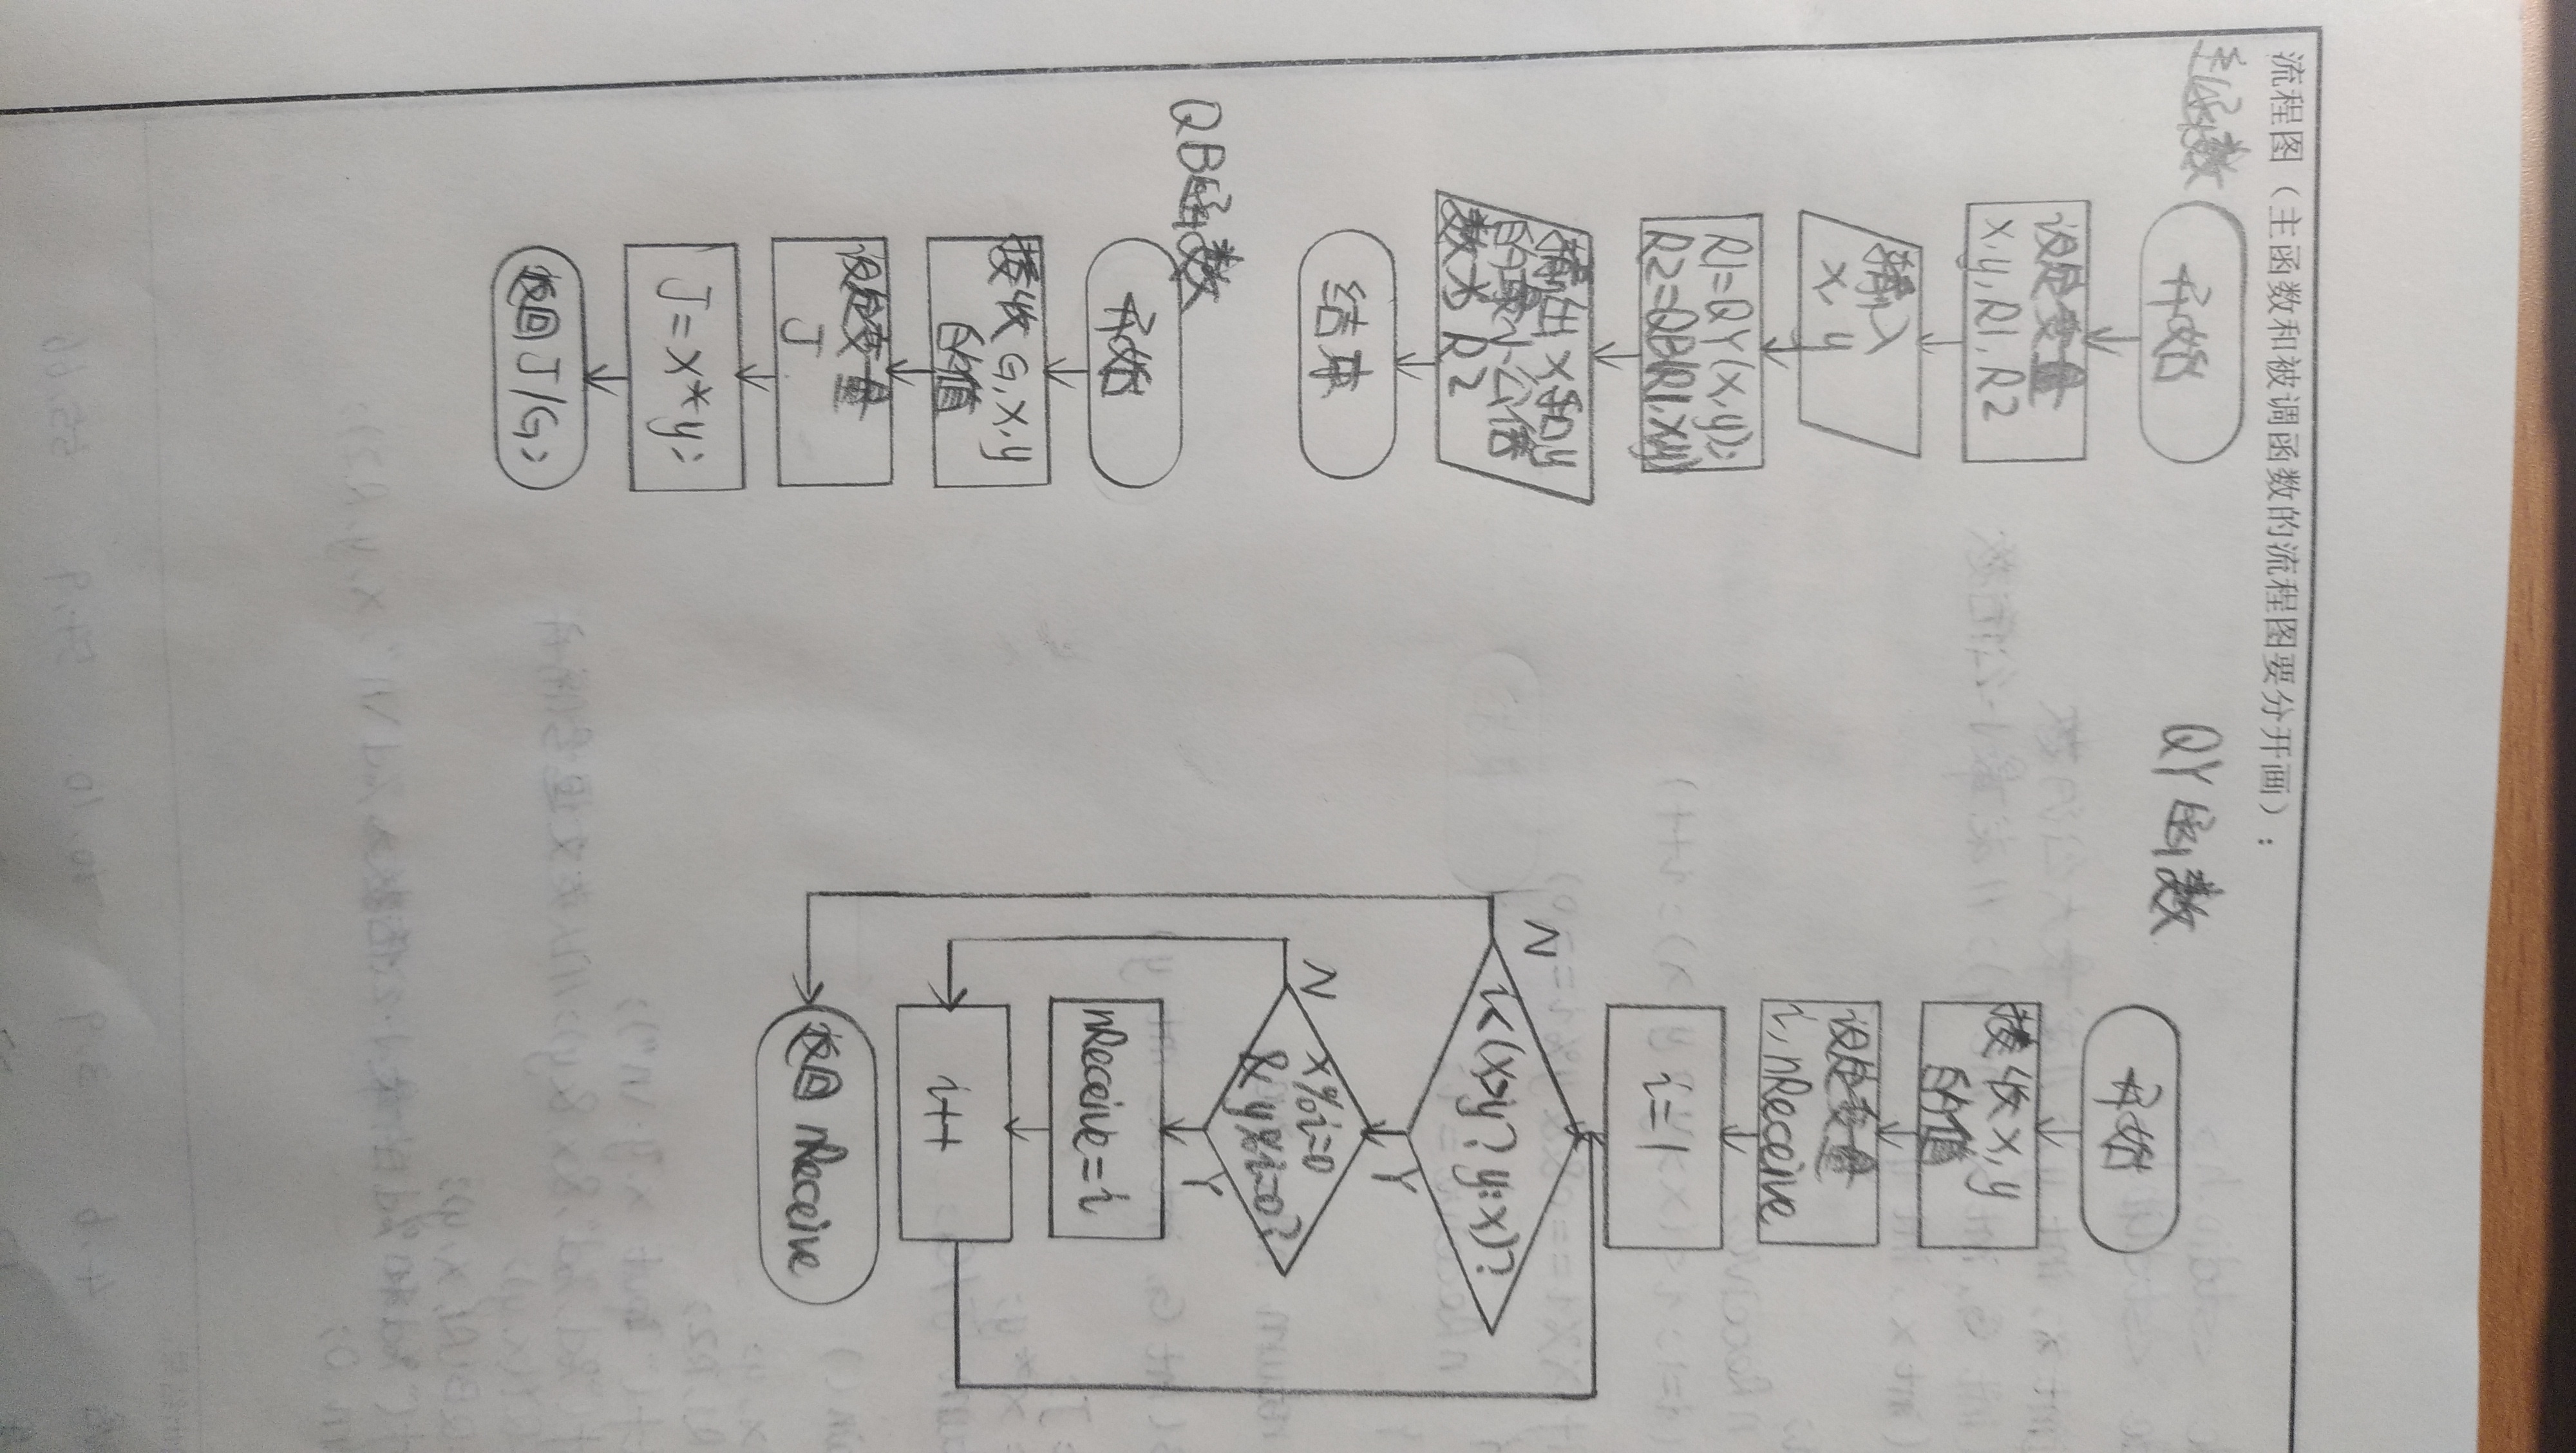 流程图（主函数和被调函数的流程图要分开画）：
主函数
开始
设定变量
x,y,R1,R2
输入
x,y
R1=QY(x,y);
R2=QB(R1,x,y)
输出x和y
的最小公倍
数为R2
结束
QB函数
开始
接收G,x,y
的值
设定变量
J
J=x*y;
返回J/G;
QY函数
开始
接收x,y
的值
设定变量
i,nReceive
i=1
i<(x>y?y:x)?
N
Y
x%i=0
&y%i=0?
N
Y
nReceive=i
i++
返回nReceive